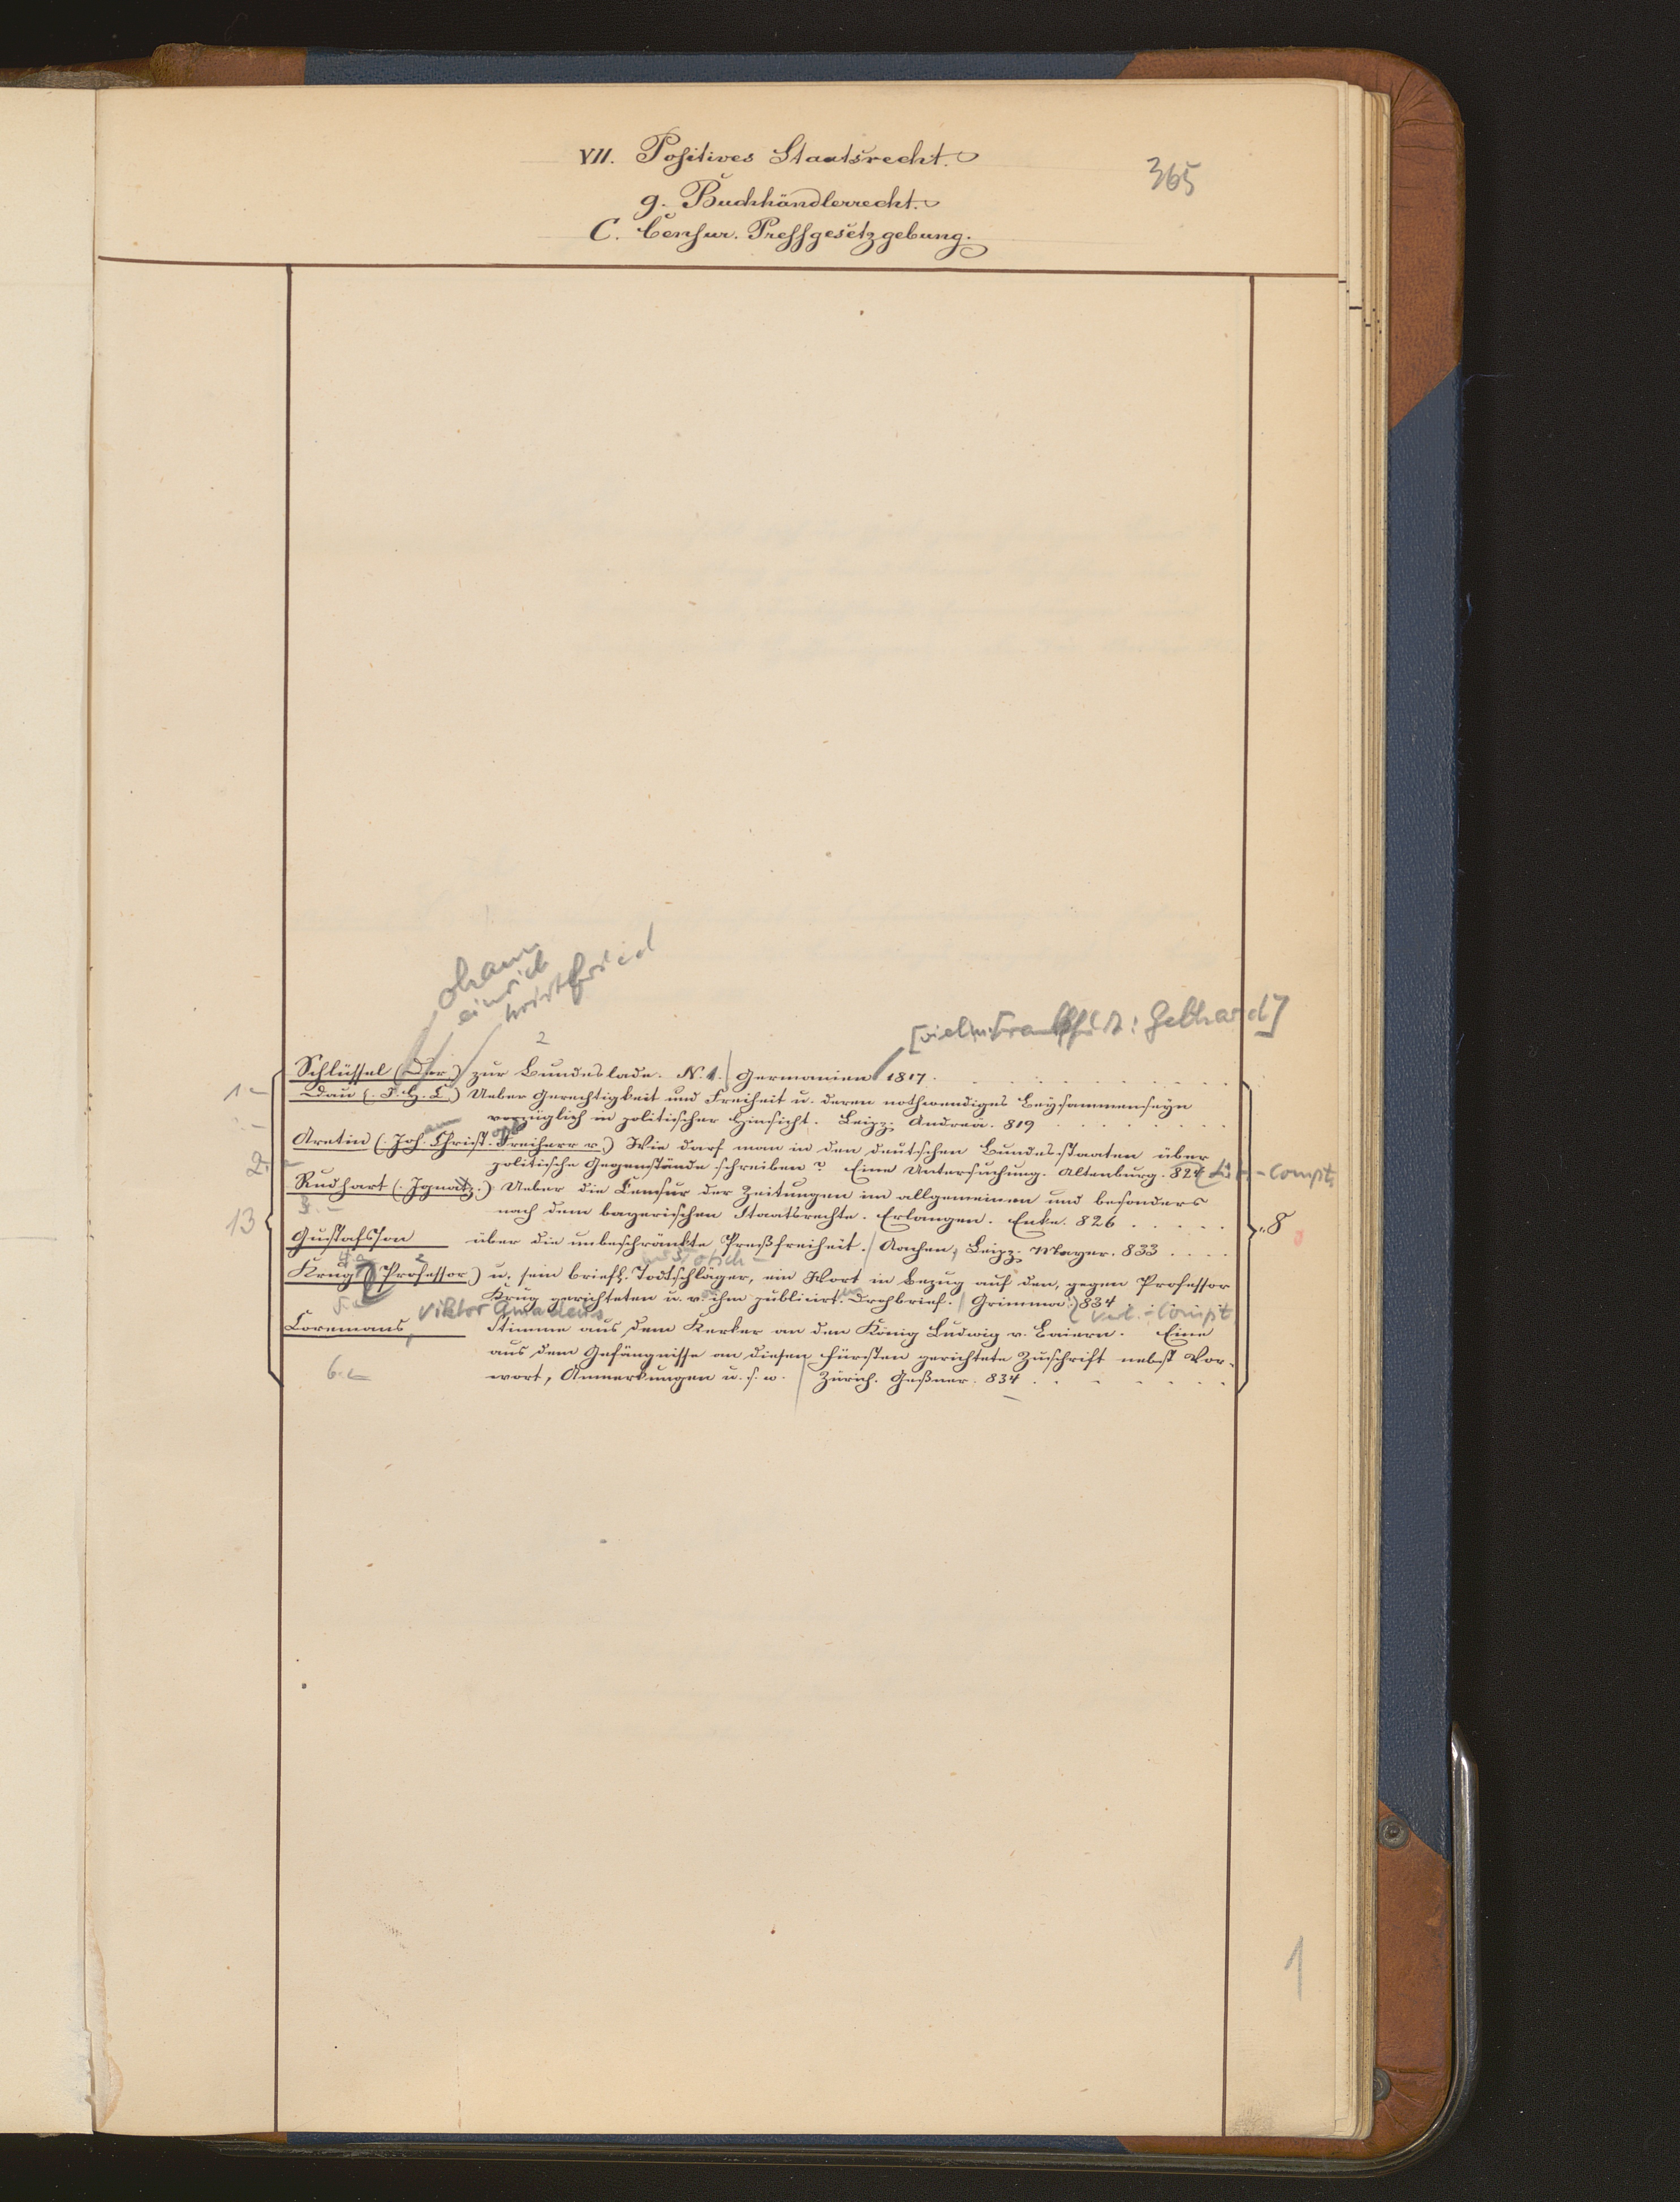 VII. Positives Staatsrecht.
365
g. Buchhändlerrecht.
C. Censur. Pressgesetzgebung.
ohann
einrich
hristfried
[vielm. Frankfurt: Gebhard]
2
Schlüssel (Der) zur Bundeslade. N. 1. / Germanien 1817.
1 -
Dau (J. H. C.) Ueber Gerechtigkeit und Freiheit u. deren nothwendiges Beysammenseyn
vorzüglich in politischer Hinsicht. Leipz. Andreä. 819
Aretin (Joh. Christ. Freiherr v.) Wie darf man in den deutschen Bundesstaaten über
2. -
politische Gegenstände schreiben? Eine Untersuchung. Altenburg. 824 Lit. - Compt.
Rudhart (Ignatz.) Ueber die Censur der Zeitungen im allgemeinen und besonders
3. -
nach dem bayerischen Staatsrechte. Erlangen. Enke. 826
13
8
Gustafsson über die unbeschränkte Preßfreiheit. / Aachen, Leipz. Mayer. 833
4.
2
Krug (Professor) u. sein briefl. Todtschläger, ein Wort in Bezug auf den, gegen Professor
5.
Krug gerichteten u. v. ihm publicirt. Drohbrief. / Grimma. 834
Verl. - Compt.
Viktor Amadeus
Coremans, Stimme aus dem Kerker an den König Ludwig v. Baiern. Eine
aus dem Gefängnisse an diesen Fürsten gerichtete Zuschrift nebst Vor-
6.
wort, Anmerkungen u. s. w. / Zürich. Geßner. 834
1